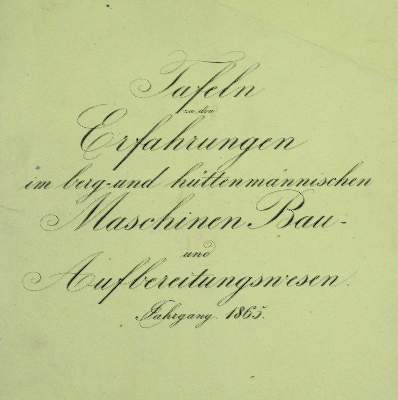 Tafeln
zu den
Erfahrungen
im berg-und hüttenmännischen
Maschinen Bau-
und
Aufbereitungswesen.
Jahrgang 1865.